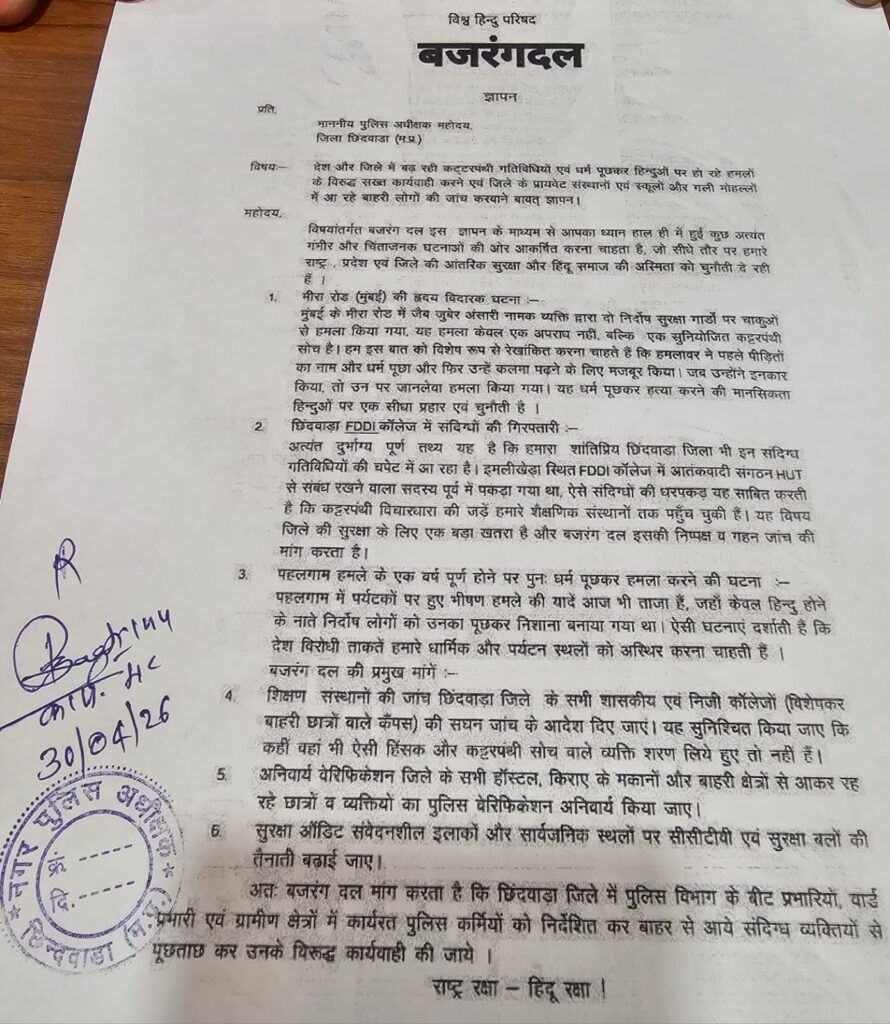 विश्व हिन्दु परिषद
बजरंगदल
ज्ञापन
प्रति,
माननीय पुलिस अधीक्षक महोदय,
जिला छिंदवाडा (म.प्र.)
विषयः– देश और जिले में बढ रही कट्टरपंथी गतिविधियों एवं धर्म पूछकर हिन्दुओं पर हो रहे हमलों
के विरुद्ध सख्त कार्यवाही करने एवं जिले के प्रायवेट संस्थानों एवं स्कूलों और गली मोहल्लों
में आ रहे बाहरी लोगों की जांच करवाने बावत् ज्ञापन।
महोदय,
विषयांतर्गत बजरंग दल इस ज्ञापन के माध्यम से आपका ध्यान हाल ही में हुई कुछ अत्यंत
गंभीर और चिंताजनक घटनाओं की ओर आकर्षित करना चाहता है, जो सीधे तौर पर हमारे
राष्ट्र , प्रदेश एवं जिले की आंतरिक सुरक्षा और हिंदू समाज की अस्मिता को चुनौती दे रही
हैं ।
1. मीरा रोड (मुंबई) की हृदय विदारक घटना :–
मुंबई के मीरा रोड में जैब जुबेर अंसारी नामक व्यक्ति द्वारा दो निर्दोष सुरक्षा गार्डो पर चाकुओं
से हमला किया गया, यह हमला केवल एक अपराध नहीं, बल्कि एक सुनियोजित कट्टरपंथी
सोच है। हम इस बात को विशेष रूप से रेखांकित करना चाहते हैं कि हमलावर ने पहले पीड़ितों
का नाम और धर्म पूछा और फिर उन्हें कलमा पढ़ने के लिए मजबूर किया। जब उन्होंने इनकार
किया, तो उन पर जानलेवा हमला किया गया। यह धर्म पूछकर हत्या करने की मानसिकता
हिन्दुओं पर एक सीधा प्रहार एवं चुनौती है ।
2. छिंदवाड़ा FDDI कॉलेज में संदिग्धों की गिरफ्तारी :–
अत्यंत दुर्भाग्य पूर्ण तथ्य यह है कि हमारा शांतिप्रिय छिंदवाड़ा जिला भी इन संदिग्ध
गतिविधियों की चपेट में आ रहा है। इमलीखेड़ा स्थित FDDI कॉलेज में आतंकवादी संगठन HUT
से संबंध रखने वाला सदस्य पूर्व में पकड़ा गया था, ऐसे संदिग्धों की धरपकड़ यह साबित करती
है कि कट्टरपंथी विचारधारा की जड़ें हमारे शैक्षणिक संस्थानों तक पहुँच चुकी हैं। यह विषय
जिले की सुरक्षा के लिए एक बड़ा खतरा है और बजरंग दल इसकी निष्पक्ष व गहन जांच की
मांग करता है।
3. पहलगाम हमले के एक वर्ष पूर्ण होने पर पुनः धर्म पूछकर हमला करने की घटना :–
पहलगाम में पर्यटकों पर हुए भीषण हमले की यादें आज भी ताजा हैं, जहाँ केवल हिन्दु होने
के नाते निर्दोष लोगों को उनका पूछकर निशाना बनाया गया था। ऐसी घटनाएं दर्शाती हैं कि
देश विरोधी ताकतें हमारे धार्मिक और पर्यटन स्थलों को अस्थिर करना चाहती हैं ।
बजरंग दल की प्रमुख मांगें :–
4. शिक्षण संस्थानों की जांच छिंदवाड़ा जिले के सभी शासकीय एवं निजी कॉलेजों (विशेषकर
बाहरी छात्रों वाले कैंपस) की सघन जांच के आदेश दिए जाएं। यह सुनिश्चित किया जाए कि
कहीं वहां भी ऐसी हिंसक और कट्टरपंथी सोच वाले व्यक्ति शरण लिये हुए तो नहीं हैं।
5. अनिवार्य वेरिफिकेशन जिले के सभी हॉस्टल, किराए के मकानों और बाहरी क्षेत्रों से आकर रह
रहे छात्रों व व्यक्तियों का पुलिस वेरिफिकेशन अनिवार्य किया जाए।
6. सुरक्षा ऑडिट संवेदनशील इलाकों और सार्वजनिक स्थलों पर सीसीटीवी एवं सुरक्षा बलों की
तैनाती बढाई जाए।
अतः बजरंग दल मांग करता है कि छिंदवाड़ा जिले में पुलिस विभाग के बीट प्रभारियो, वार्ड
प्रभारी एवं ग्रामीण क्षेत्रों में कार्यरत पुलिस कर्मियों को निर्देशित कर बाहर से आये संदिग्ध व्यक्तियों से
पूछताछ कर उनके विरूद्ध कार्यवाही की जाये ।
राष्ट्र रक्षा – हिंदू रक्षा !
30/04/26
नगर पुलिस अधीक्षक
क्रं. ------
दि. ------
छिन्दवाडा (म.प्र.)